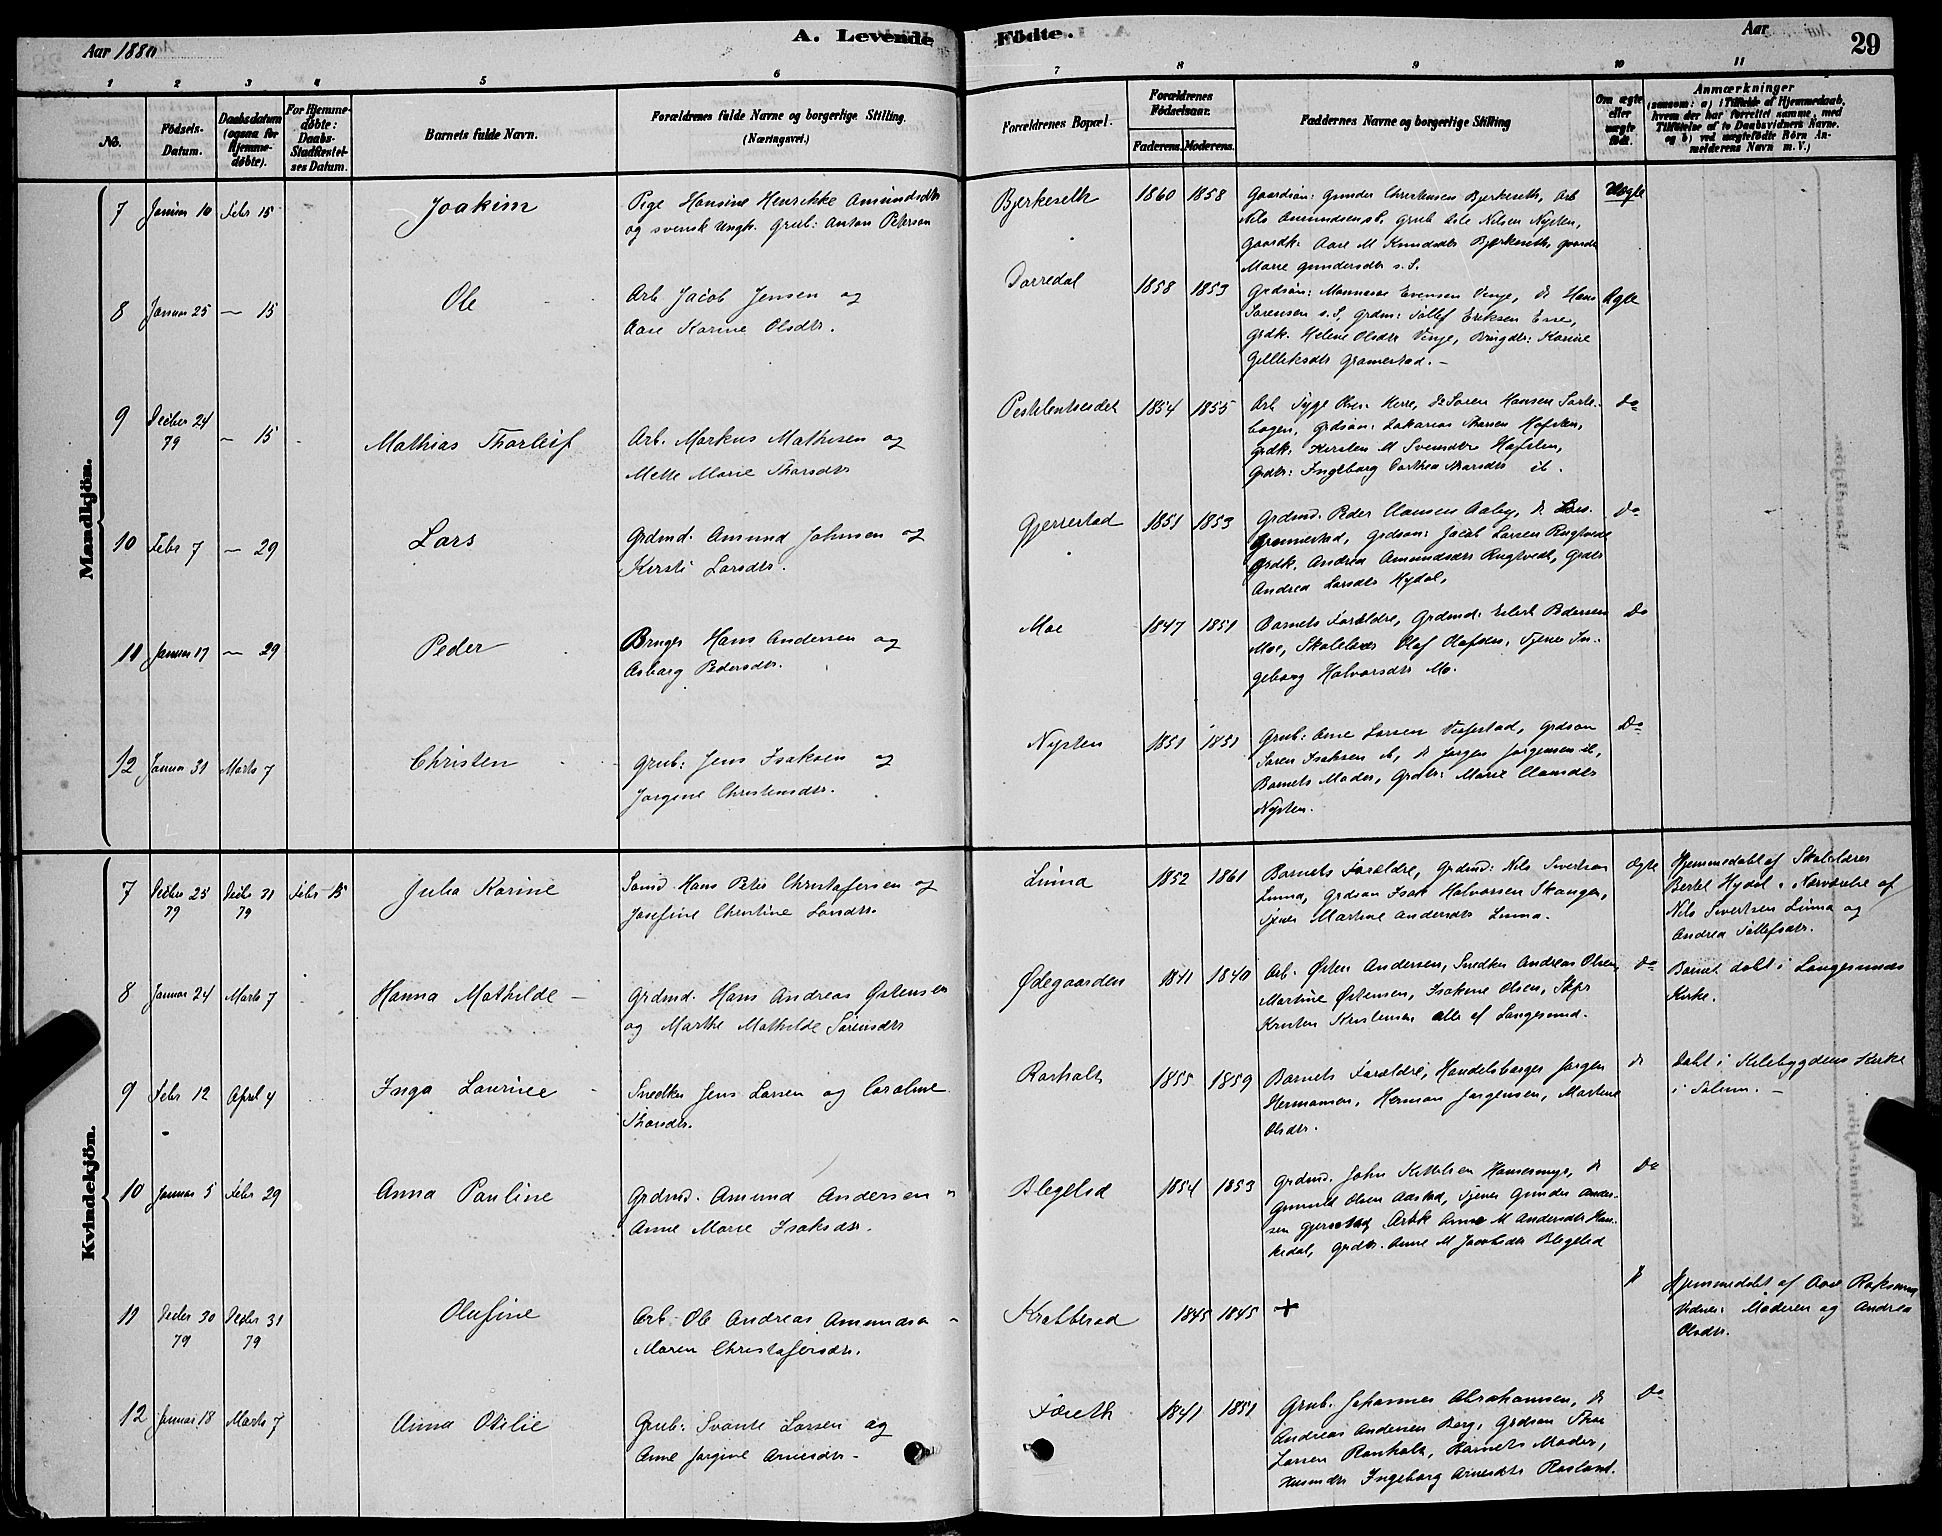 Aar 1880
A. Levende Födte.
Aar
29
1 2 3 4 5 6 7 8 9 10 11
No.
Födsels-Datum.
Daabsdatum (ogsaa for Hjemme-döbte).
For Hjemme-döbte: Daabs-Stadfæstel-ses Datum.
Barnets fulde Navn.
Forældrenes fulde Navne og borgerlige Stilling. (Næringsvei.)
Forældrenes Bopæl.
Forældrenes Fødselsaar.
Faderens. Moderens.
Faddernes Navne og borgerlige Stilling
Om ægte eller uægte født.
Anmærkninger
(saasom: a) i Tilfælde af Hjemmedaab, hvem der har forrettet samme, med Tilföielse af to Daabsvidners Navne, og b) ved uægtefödte Börn An-melderens Navn m. V.)
Mandkjön.
7 Januar 10 Febr 15 Joakim
Pige Hansine Henrikke Amundsdtr
og svensk Ungk. Grub: Anton Peterson
Bjerkeseth 1860 1858
Gaardsøn: Gunder Christensen Bjerkeseth, Arb
Nils Amundsen st, Grub Nilsen Nysten,
Gaardk. Aase M Knudsdtr Bjerkeseth,
Marie Gundersdtr s. S.
Uægte
8 Januar 25 — 15 Ole
Arb Jacob Jensen og
Aase Karine Olsdtr.
Dorredal 1858 1853
Grdsøn: Evensen Vinje, do Hans
Sorensen s. S, Grdm: Tollef Eriksen
Grdk. Helene Olsdtr Vinje, Karine
Gramestad. —
Ægte
9 Decber 24 79 — 15 Mathias Thorleif
Arb. Markus Mathisen og
Mette Marie Thorsdtr
1854 1855
Arb Herre, do Soren Hansen
Grdsøn: Zakarias Hafsten,
Grdk: Kirsten M Svensdtr Hafsten,
Grdtr: Ingeborg Dorthea Thorsdtr ib.
do
10 Febr 7 — 29 Lars
Grdmd. Amund Johnsen og
Kirsti Larsdtr.
Gjerrestad 1851 1853
Grdmd. Peder Clausen Aaby, do Lars
Gramestad, Grdson: Jacob Larsen Rugtvedt
Grdk. Andrea Amundsdtr Rugtvedt, Grdtr
Andrea Larsdtr Hydal,
do
11 Januar 17 — 29 Peder
Bruger Hans Andersen og
Asborg Pedersdtr.
Moe 1847 1851
Barnets Forældre, Grdmd: Eilert Pedersen
Moe, Skolelærer Olaf Olafsen, Tjener In-
geborg Halvorsdtr Mo.
Do
12 Januar 31 Marts 7 Christen
Grub: Jens Isaksen og
Jorgine Christensdtr.
Nysten 1851 1851
Grub: Arne Larsen Vissestad, Grdson
Soren Isaksen ib, do Jorgen Jorgensen ib,
Barnets Moder, Grdtr: Marie Clausdtr
Nysten.
Do
Kvindekjön.
7 Decber 25 79 Decbr 31 79 Febr 15 Julia Karine
Somd. Hans Peter Christofersen og
Josefine Christine Larsdtr.
Linna 1852 1861
Barnets Forældre, Grdmd: Nils Sivertsen
Linna, Grdson Isak Halvorsen Skanger,
Tjener Martine Andersdtr Linna.
Ægte
Hjemmedobt af Skolelærer
Bertel Hydal i Nærværelse af
Nils Sivertsen Linna og
Andrea Tollefsdtr.
8 Januar 24 Marts 7 Hanna Mathilde —
Grdmd. Hans Andreas Østensen
og Marthe Mathilde Sorensdtr
Ødegaarden 1841 1840
Arb. Østen Andersen, Snedker Andreas Olsen,
Martine Østensen, Isakine Olsen, Skpr
Kristen Kristensen alle af Langesund.
do
Barnet dobt i Langesunds
Kirke.
9 Febr 12 April 4 Inga Laurine
Snedker Jens Larsen og Caroline
Thorsdtr.
Ronholt 1855 1859
Barnets Forældre, Handelsborger Jorgen
Hermansen, Herman Jorgensen, Martine
Olsdtr.
do
Dobt i Kilebygdens Kirke
i Solum. —
10 Januar 5 Febr 29 Anna Pauline
Grdmd. Amund Andersen
Anne Marie Isaksdtr.
Blegelid 1854 1853
Grdmd. John Kittilsen Hansesmyr, do
Gunnuld Olsen Aastad, Tjener Gunder Ander-
sen Gjerrestad Arbk Anne M Andersdtr
Grdtr. Anne M Jacobsdtr Blegelid
Do
11 Decbr 30 79 Decbr 31 79 Olufine
Arb. Ole Andreas Amundsen
Maren Christofersdtr.
Krabberød 1845 1845 +
Hjemmedobt af Aase
Vidner: Moderen og Andrea
Olsdtr.
12 Januar 18 Marts 7 Anna Otilie
Grub: Svante Larsen og
Anne Jorgine Arnesdtr —
1841 1851
Grub. Johannes Abrahamsen, do
Andreas Andersen Berg, Grdson Thor
Larsen Ronholt, Barnets Moder,
Ingeborg Arnesdtr Rosland.
Do